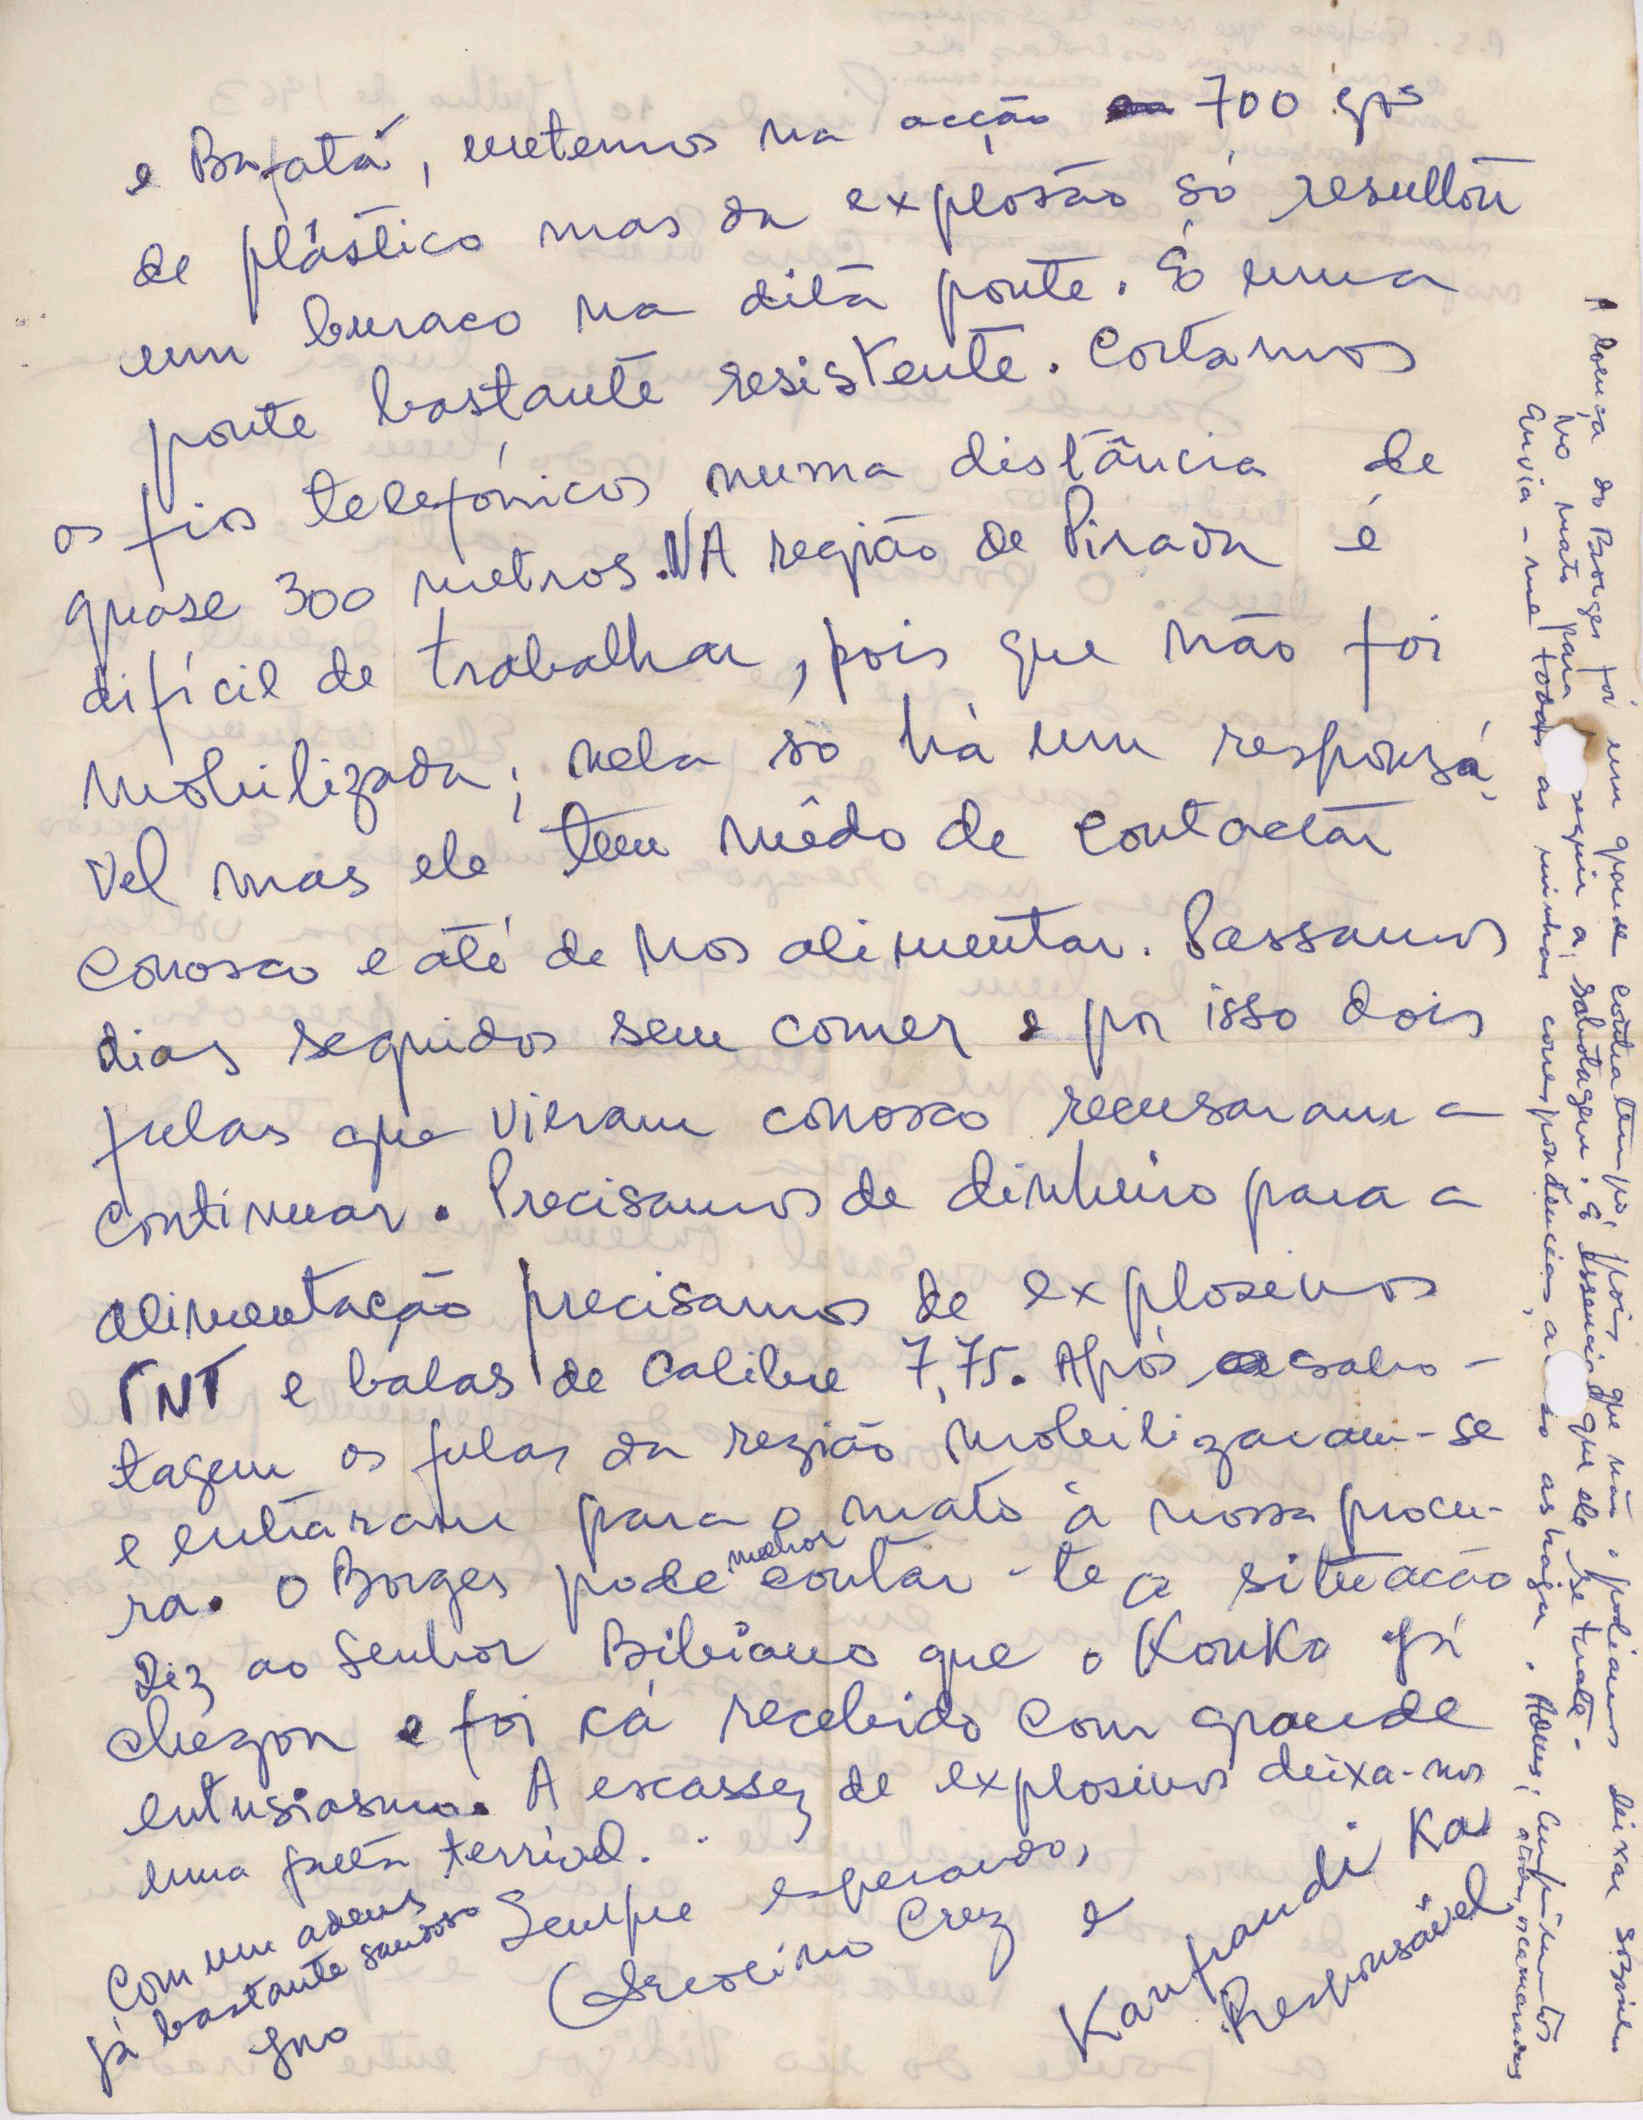 e Bafatá, metemos na acção 700 grs
de plástico mas da explosão só resultou
um buraco na dita ponte. É uma
ponte bastante resistente. Cortamos
os fios telefónicos numa distância de
quase 300 metros. NA região de Pirada é
difícil de trabalhar, pois que não foi
mobilizada; nela só há um responsá-
vel mas ele tem mêdo de contactar
conosco e até de nos alimentar. Passamos
dias seguidos sem comer e por isso dois
fulas que vieram conosco recusaram a
continuar. Precisamos de dinheiro para a
alimentação precisamos de explosivos
TNT e balas de calibre 7,75. Após a sabo-
tagem os fulas da região mobilizaram-se
e entraram para o mato à nossa procu-
ra. O Borges pode melhor contar-te a situação
Diz ao Senhor Bibiano que o Konko já
chegou e foi cá recebido com grande
entusiasmo. A escassez de explosivos deixa-nos
numa terrível.
Sempre esperando,
Cruz e
Kanfrandi Ka
Responsável
Com um adeus
já bastante saudoso
A doença do Borges foi um grande contratempo, pois que não o podíamos deixar sozinho
no mato para seguir a sabotagem. É essencial que ele se trate.
Envia-me todas as minhas correspondencias, as haja. Adeus, cumprimentos
a todos os camaradas